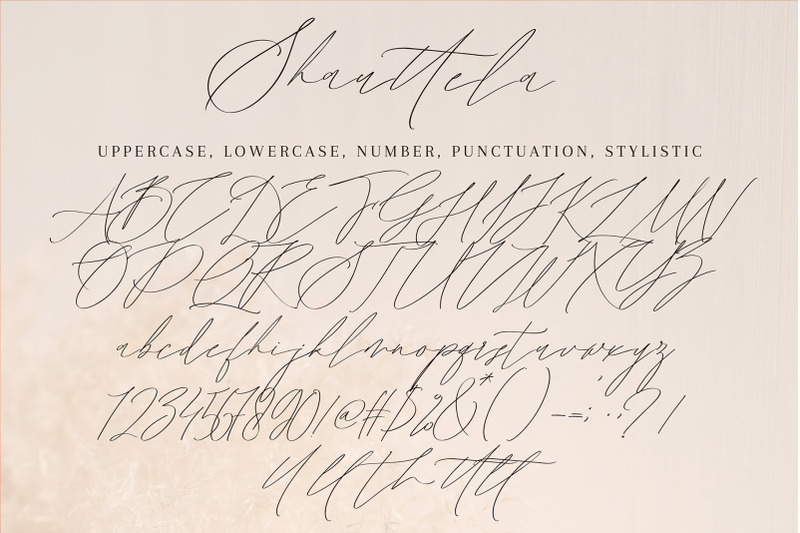 Shauttela
UPPERCASE, LOWERCASE, NUMBER, PUNCTUATION, STYLISTIC
ABCDEFGHIJKLMN
OPQRSTUVWXYZ
abcdefghijklmnopqrstuvwxyz
1234567890!@#$%&*()-=;':,?/